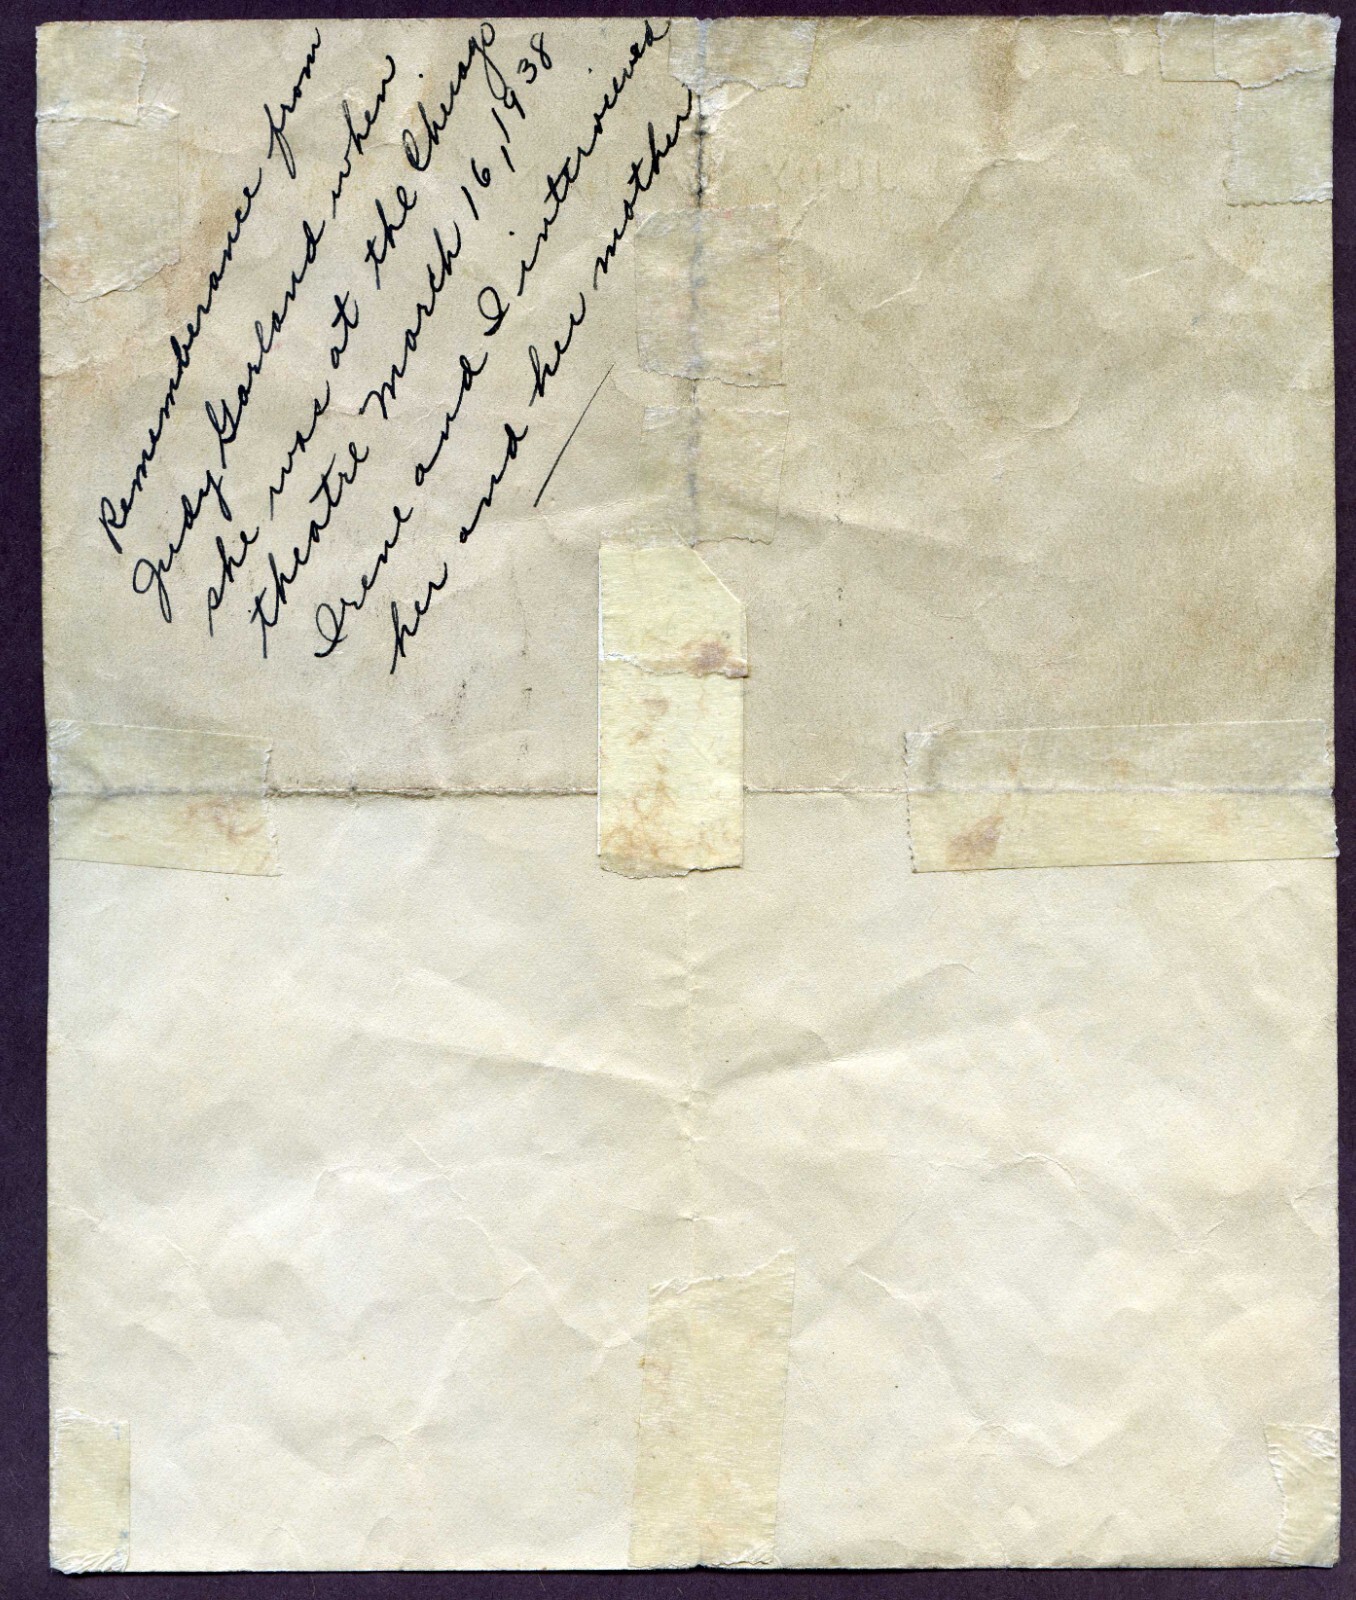 Rememberance from
Judy Garland when
she was at the Chicago
theatre March 16, 1938
Irene and I interviewed
her and her mother